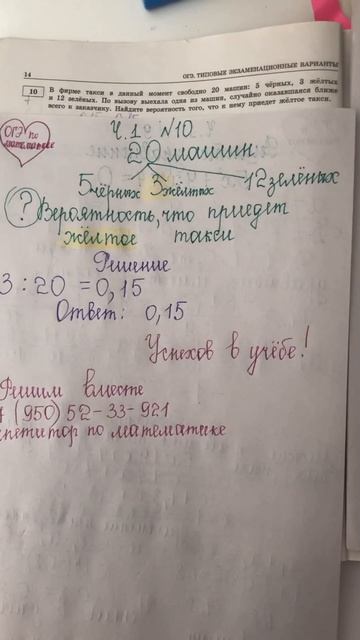 14
ОГЭ. ТИПОВЫЕ ЭКЗАМЕНАЦИОННЫЕ ВАРИАНТЫ
10 В фирме такси в данный момент свободно 20 машин: 5 чёрных, 3 жёлтых
и 12 зелёных. По вызову выехала одна из машин, случайно оказавшаяся ближе
всего к заказчику. Найдите вероятность того, что к нему приедет жёлтое такси.
ОГЭ по
математике
Ч.1 №10
20 машин
5чёрных 3жёлтых 12зелёных
? Вероятность, что приедет
жёлтое такси
Решение
3 : 20 = 0,15
Ответ: 0,15
Успехов в учёбе!
Решим вместе
(950) 52-33-921
петитор по математике